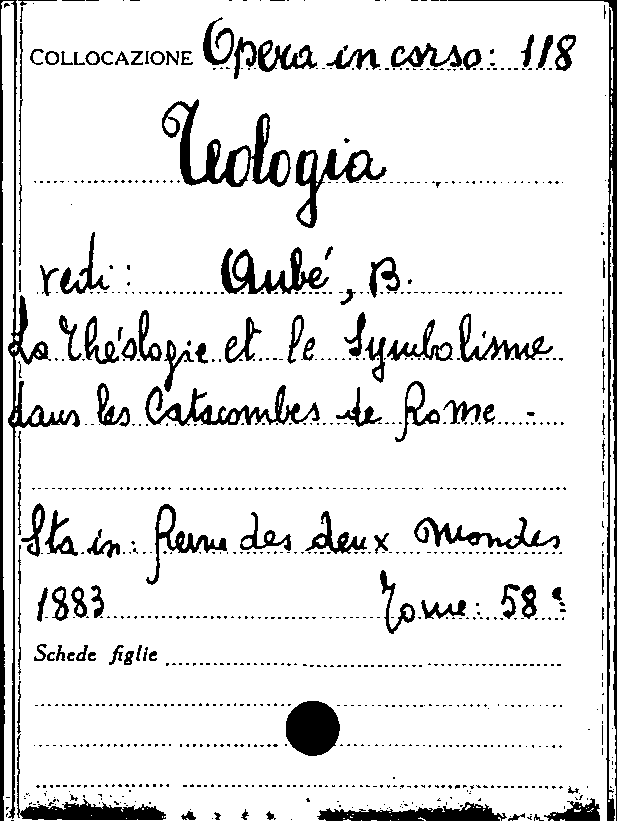 COLLOCAZIONE Opera in corso: 118
Teologia
vedi: Aubé, B.
La Théologie et le Symbolisme
dans les Catacombes de Rome -
Sta in: Revue des deux Mondes
1883 Tome: 58e
Schede figlie